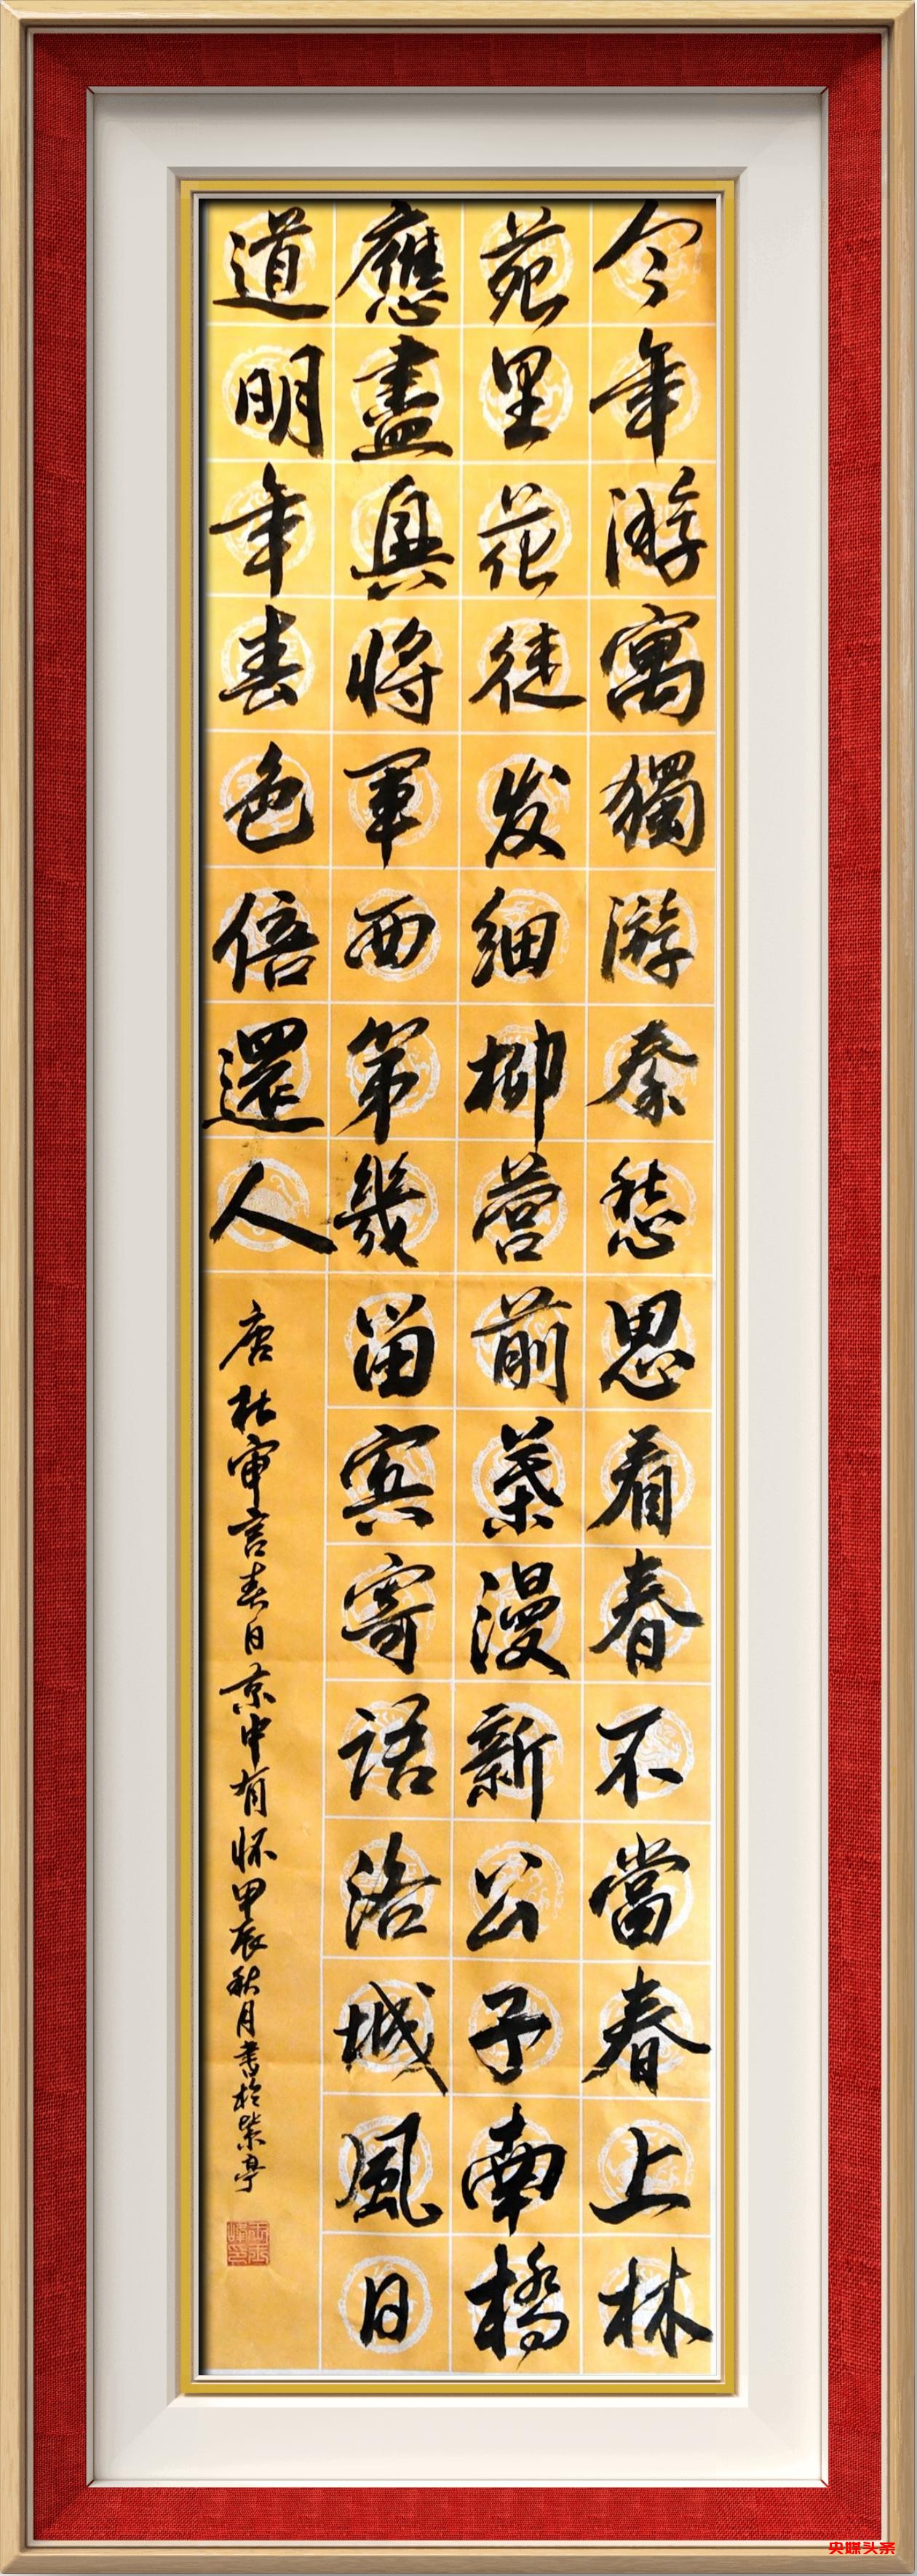 今年游寓獨游秦愁思看春不當春上林
苑里花徒发细柳营前葉漫新公子南橋
應盡興将軍西第幾留宾寄语洛城風日
道明年春色倍還人
唐杜审言春日京中有怀甲辰秋月書於紫亭
央媒头条